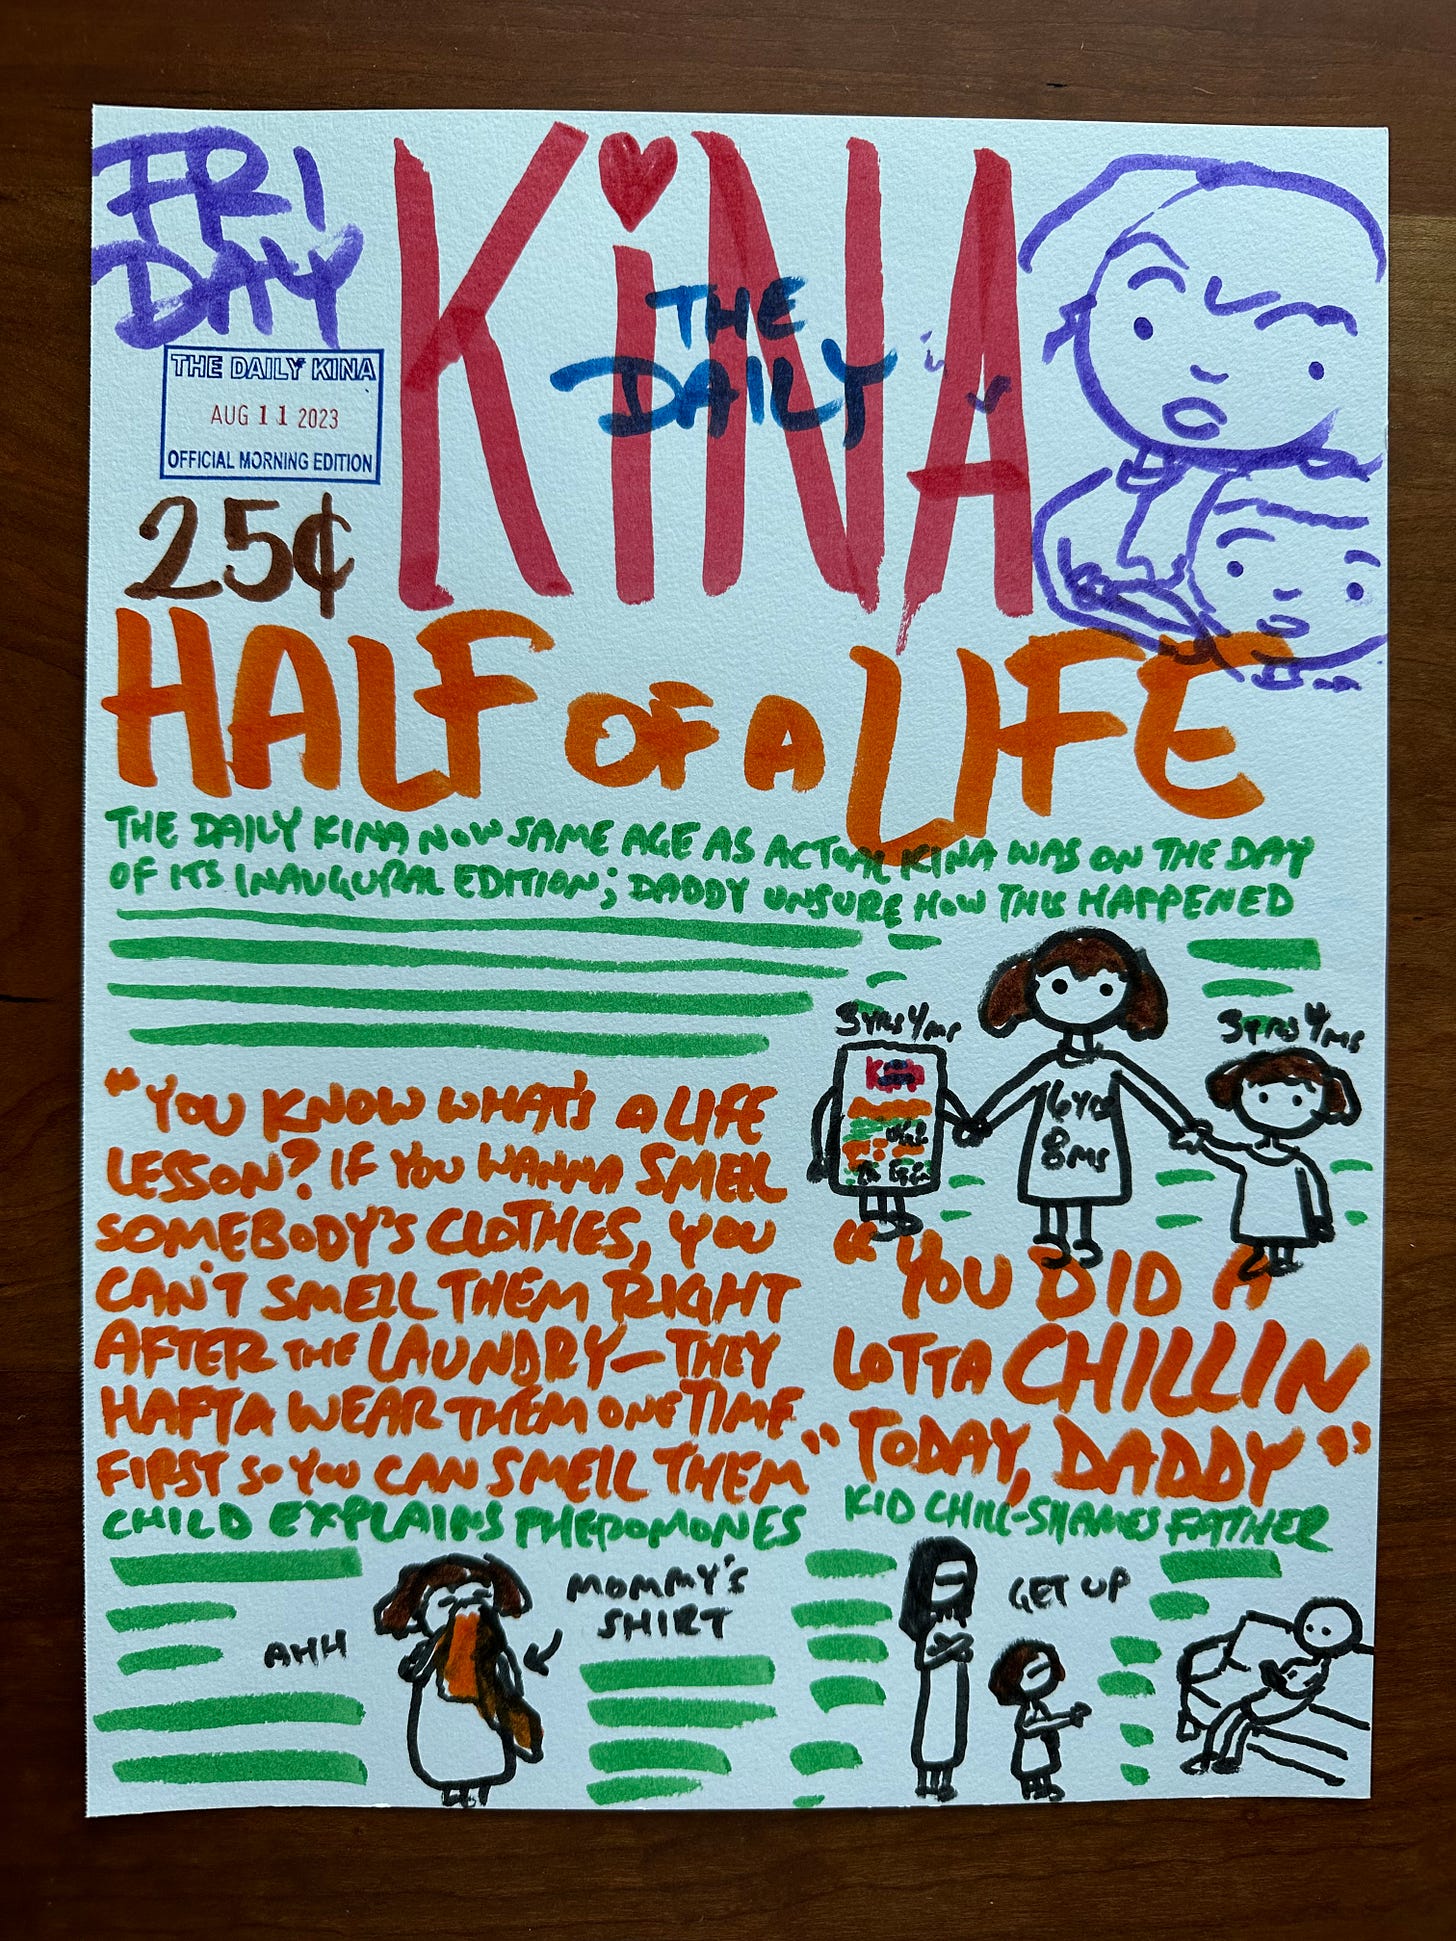 FRI
DAY
KiNA
THE
DAILY
THE DAILY KINA
AUG 11 2023
OFFICIAL MORNING EDITION
25¢
HALF OF A LIFE
THE DAILY KINA NOW SAME AGE AS ACTUAL KINA WAS ON THE DAY
OF ITS INAUGURAL EDITION; DADDY UNSURE HOW THIS HAPPENED
3 YRS 4 MS
6 YRS
8 MS
3 YRS 4 MS
KINA
"YOU KNOW WHAT'S A LIFE
LESSON? IF YOU WANNA SMELL
SOMEBODY'S CLOTHES, YOU
CAN'T SMELL THEM RIGHT
AFTER THE LAUNDRY—THEY
HAFTA WEAR THEM ONE TIME
FIRST SO YOU CAN SMELL THEM"
CHILD EXPLAINS PHEROMONES
AHH
MOMMY'S
SHIRT
"YOU DID A
LOTTA CHILLIN
TODAY, DADDY"
KID CHILL-SHAMES FATHER
GET UP